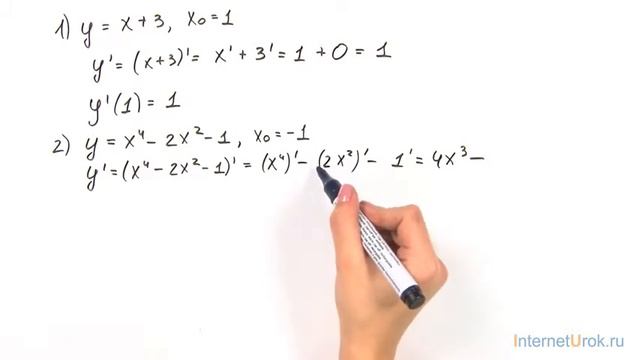 1) y = x + 3, x₀ = 1
y' = (x+3)' = x' + 3' = 1 + 0 = 1
y'(1) = 1
2) y = x⁴ - 2x² - 1, x₀ = -1
y' = (x⁴ - 2x² - 1)' = (x⁴)' - (2x²)' - 1' = 4x³ -
InternetUrok.ru